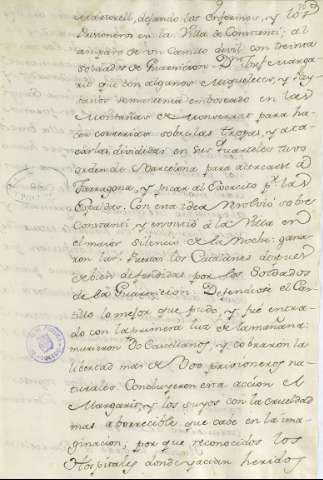 Martorell, dejando los enfermos, y los
Prisioneros en la Villa de Constantí; al
amparo de un Castillo devil con treinta
soldados de Guarnicion. Dn. Josef Margarit
que con algunos Miqueletes, y Pay-
sanos se mantenia emboscado en las
Montañas de Monserrat para ha-
cer correrias sobre las tropas, y ata-
carlas divididas en sus Quarteles tuvo
orden de Barcelona para acercarse à
Tarragona, y picar al Exercito pr. las
Espaldas. Con esta idea rebolvió sobre
Constantí y envistió à la Villa en
el maior silencio de la Noche: gana-
ron las Puertas los Catalanes despues
de bien defendidas por los Soldados
de la Guarnicion: Defendiose el Cas-
tillo lo mejor que pudo, y fué entra-
do con la primera luz de la mañana:
murieron Castellanos, y cobraron la
libertad mas de prisioneros na-
turales. Concluyeron esta accion el
Margarit, y los suyos con la crueldad
mas aborrecible que cabe en la ima-
ginacion; por que reconocidos los
Hospitales donde yacian heridos